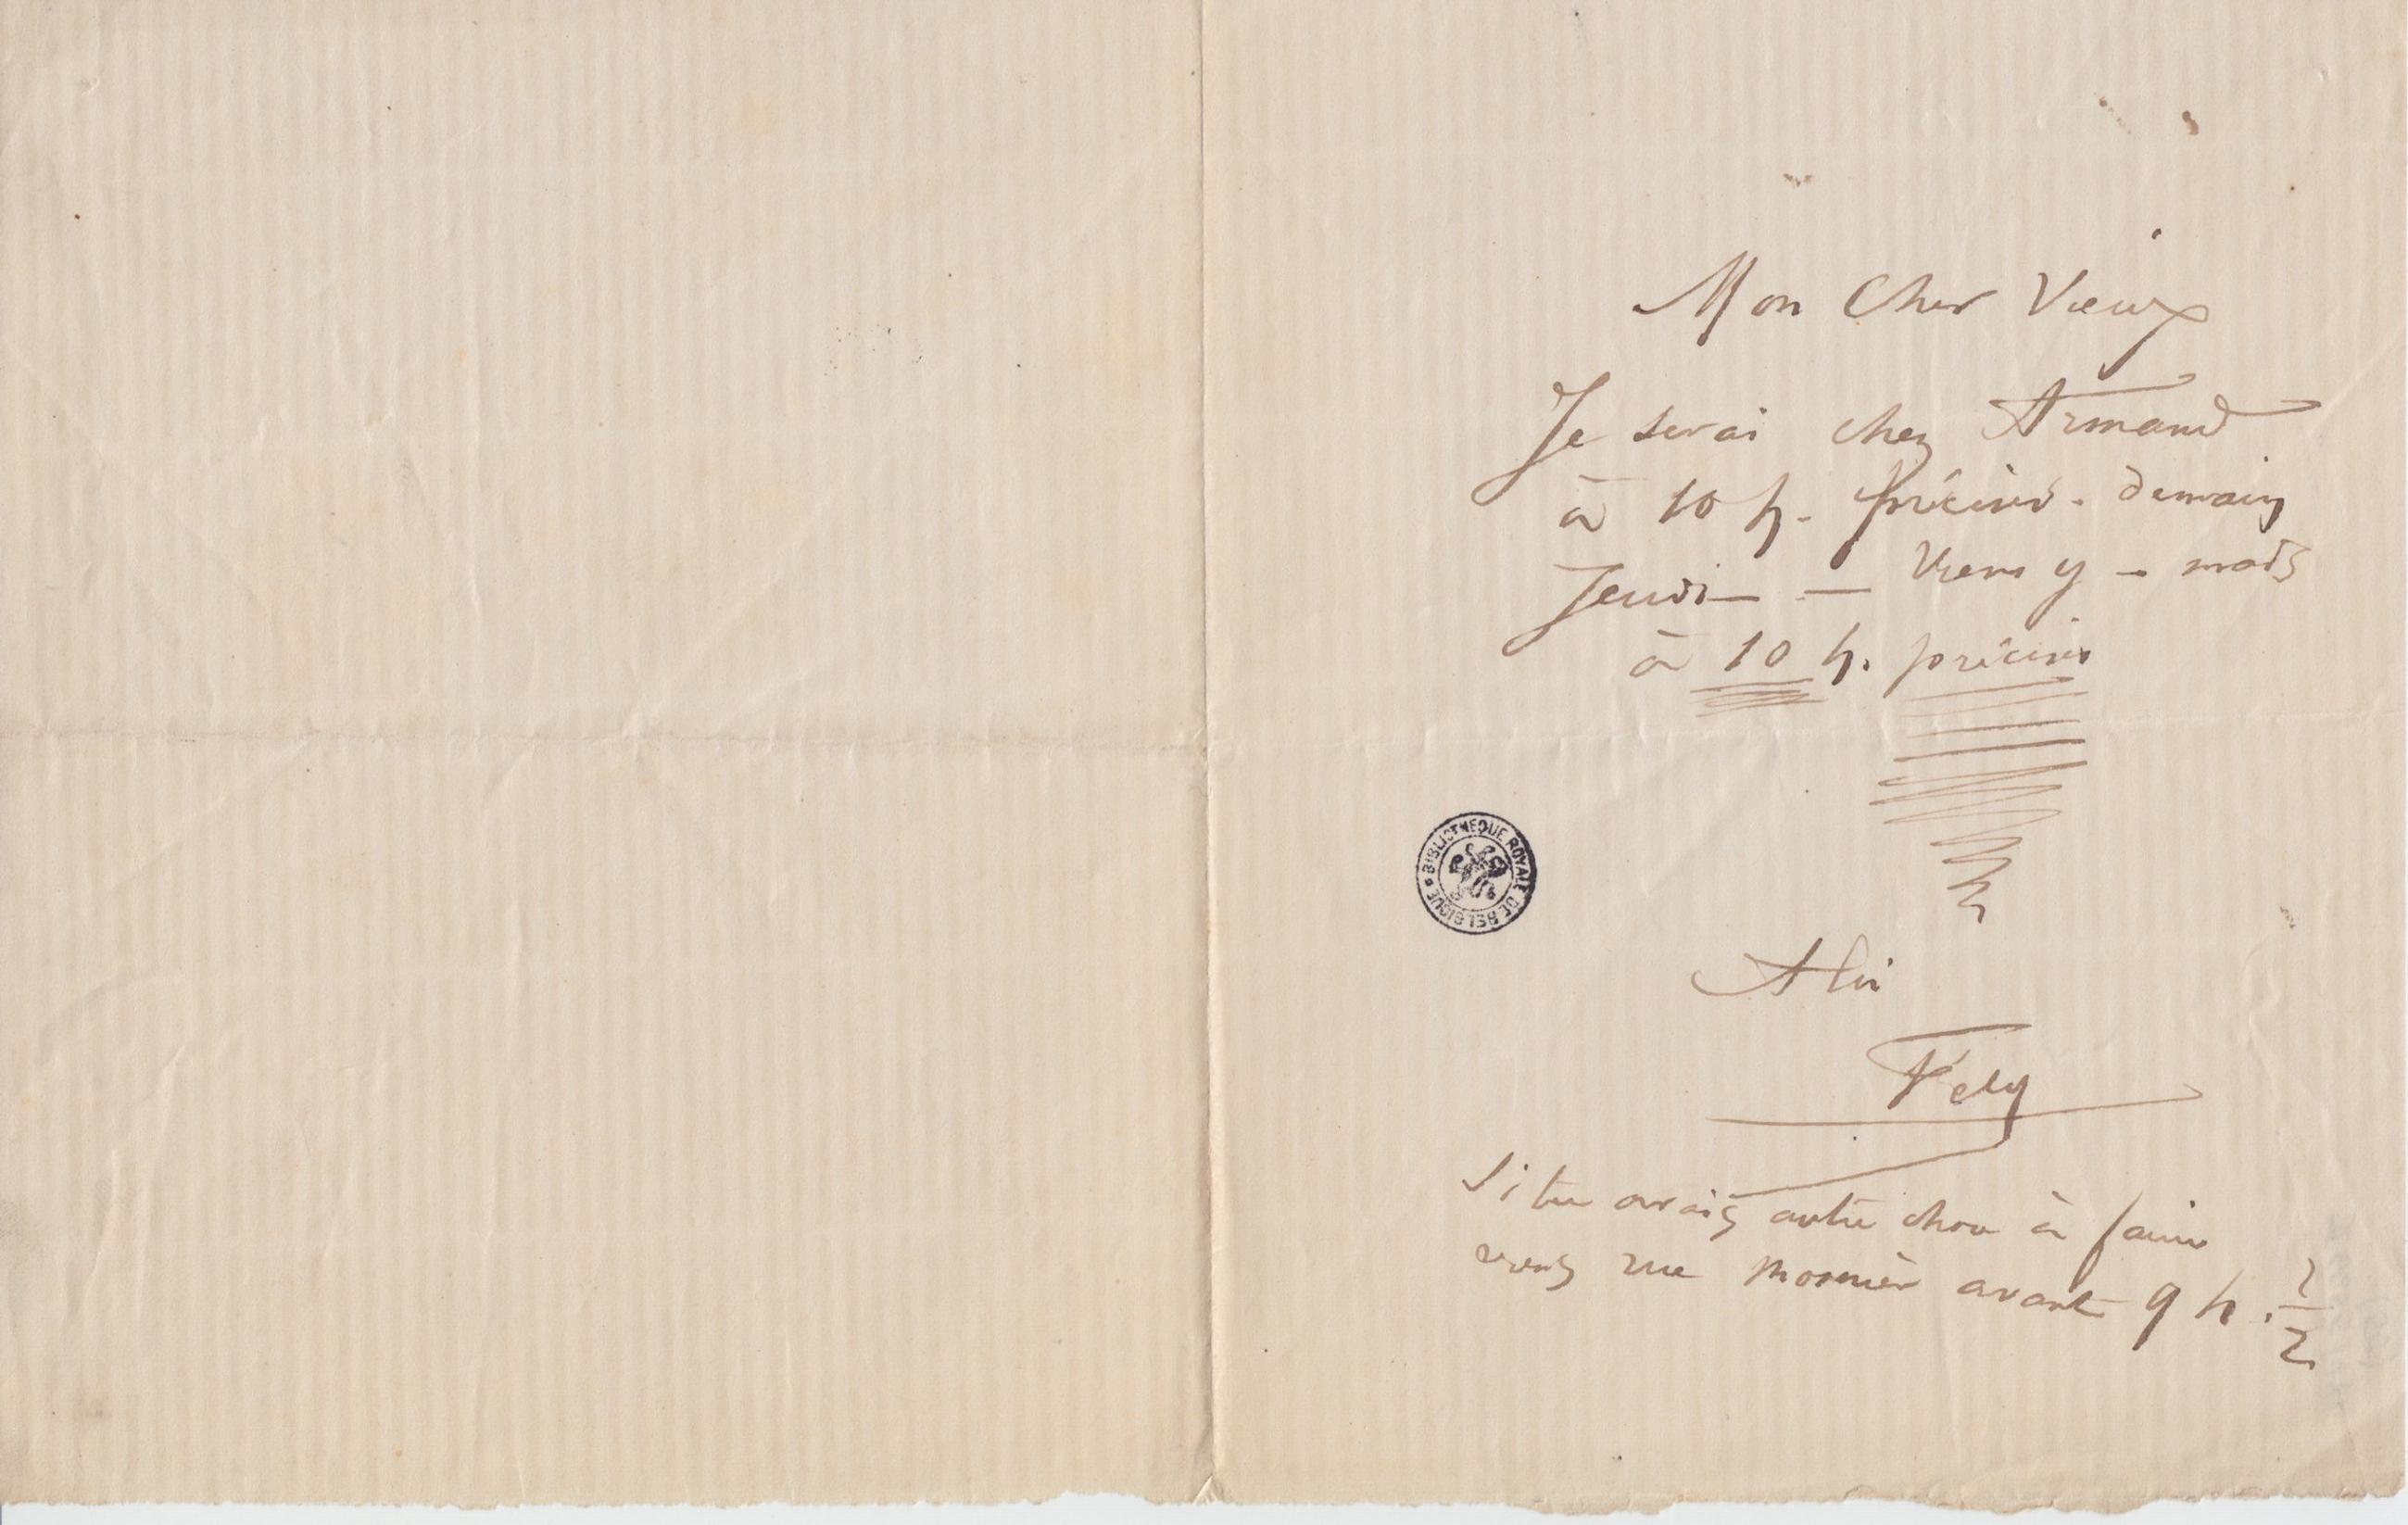 Mon Cher Vieux
Je serai chez Armand
à 10 h. précises. demain
Jeudi — — Viens y – mais
à 10 h. précises
BIBLIOTHEQUE ROYALE DE BELGIQUE
A toi
Fely
Si tu avais autre chose à faire
viens rue Mosnier avant 9 h. 1/2